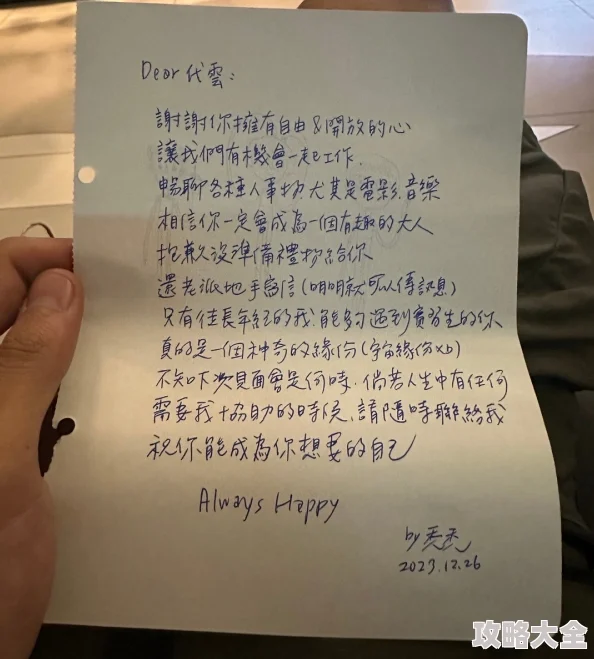 Dear 代雲：
謝謝你擁有自由&開放的心
讓我們有機會一起工作.
暢聊各種人事物.尤其是電影.音樂
相信你一定會成為一個有趣的大人
抱歉沒準備禮物給你
還老派地手寫信(明明就可以傳訊息)
只有徒長年紀的我.能夠遇到實習生的你
真的是一個神奇的緣份(宇宙緣份xb)
不知下次見面會是何時.倘若人生中有任何
需要我協助的時候.請隨時聯絡我
祝你能成為你想要的自己
Always Happy
by
2023.12.26
攻略大全